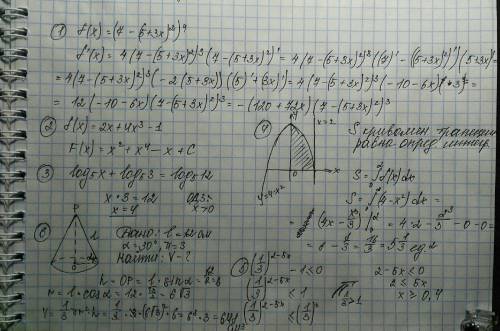 ① f(x) = (7 - (5+3x)²)⁴
f'(x) = 4(7-(5+3x)²)³ (7-(5+3x)²)' = 4(7-(5+3x)²)³ ((7)' - ((5+3x)²)')(5+3x)'
= 4(7-(5+3x)²)³ (-2(5+3x)) ((5)'+(3x)') = 4(7-(5+3x)²)³ (-10-6x)·3 =
= 12(-10-6x)(7-(5+3x)²)³ = -(120+72x)(7-(5+3x)²)³
② f(x) = 2x+4x³-1
F(x) = x²+x⁴-x+C
③ log₅x + log₅3 = log₅12
x·3=12 ОДЗ:
x=4 x>0
④ x=2
y=4-x²
S криволин. трапеции
равна опред. интегр.
S = ∫f(x)dx
S = ∫(4-x²)dx =
= (4x - x³/3)|₀² = 4·2 - 2³/3 - 0 - 0 =
= 8 - 8/3 = 16/3 = 5 1/3 ед²
⑥ P
Дано: l=12см
α=30°, π=3
Найти: V-?
h = OP = l·sinα =
r = l·cosα = 12·√3/2 = 6√3
V = 1/3 πr²h = 1/3·3·(6√3)²·6 = 6⁴·3 = 648
⑤ (1/3)^(2-5x) - 1 ≤ 0
(1/3)^(2-5x) ≤ 1
(1/3)^(2-5x) ≤ (1/3)⁰
2-5x ≤ 0
2 ≤ 5x
x ≥ 0,4